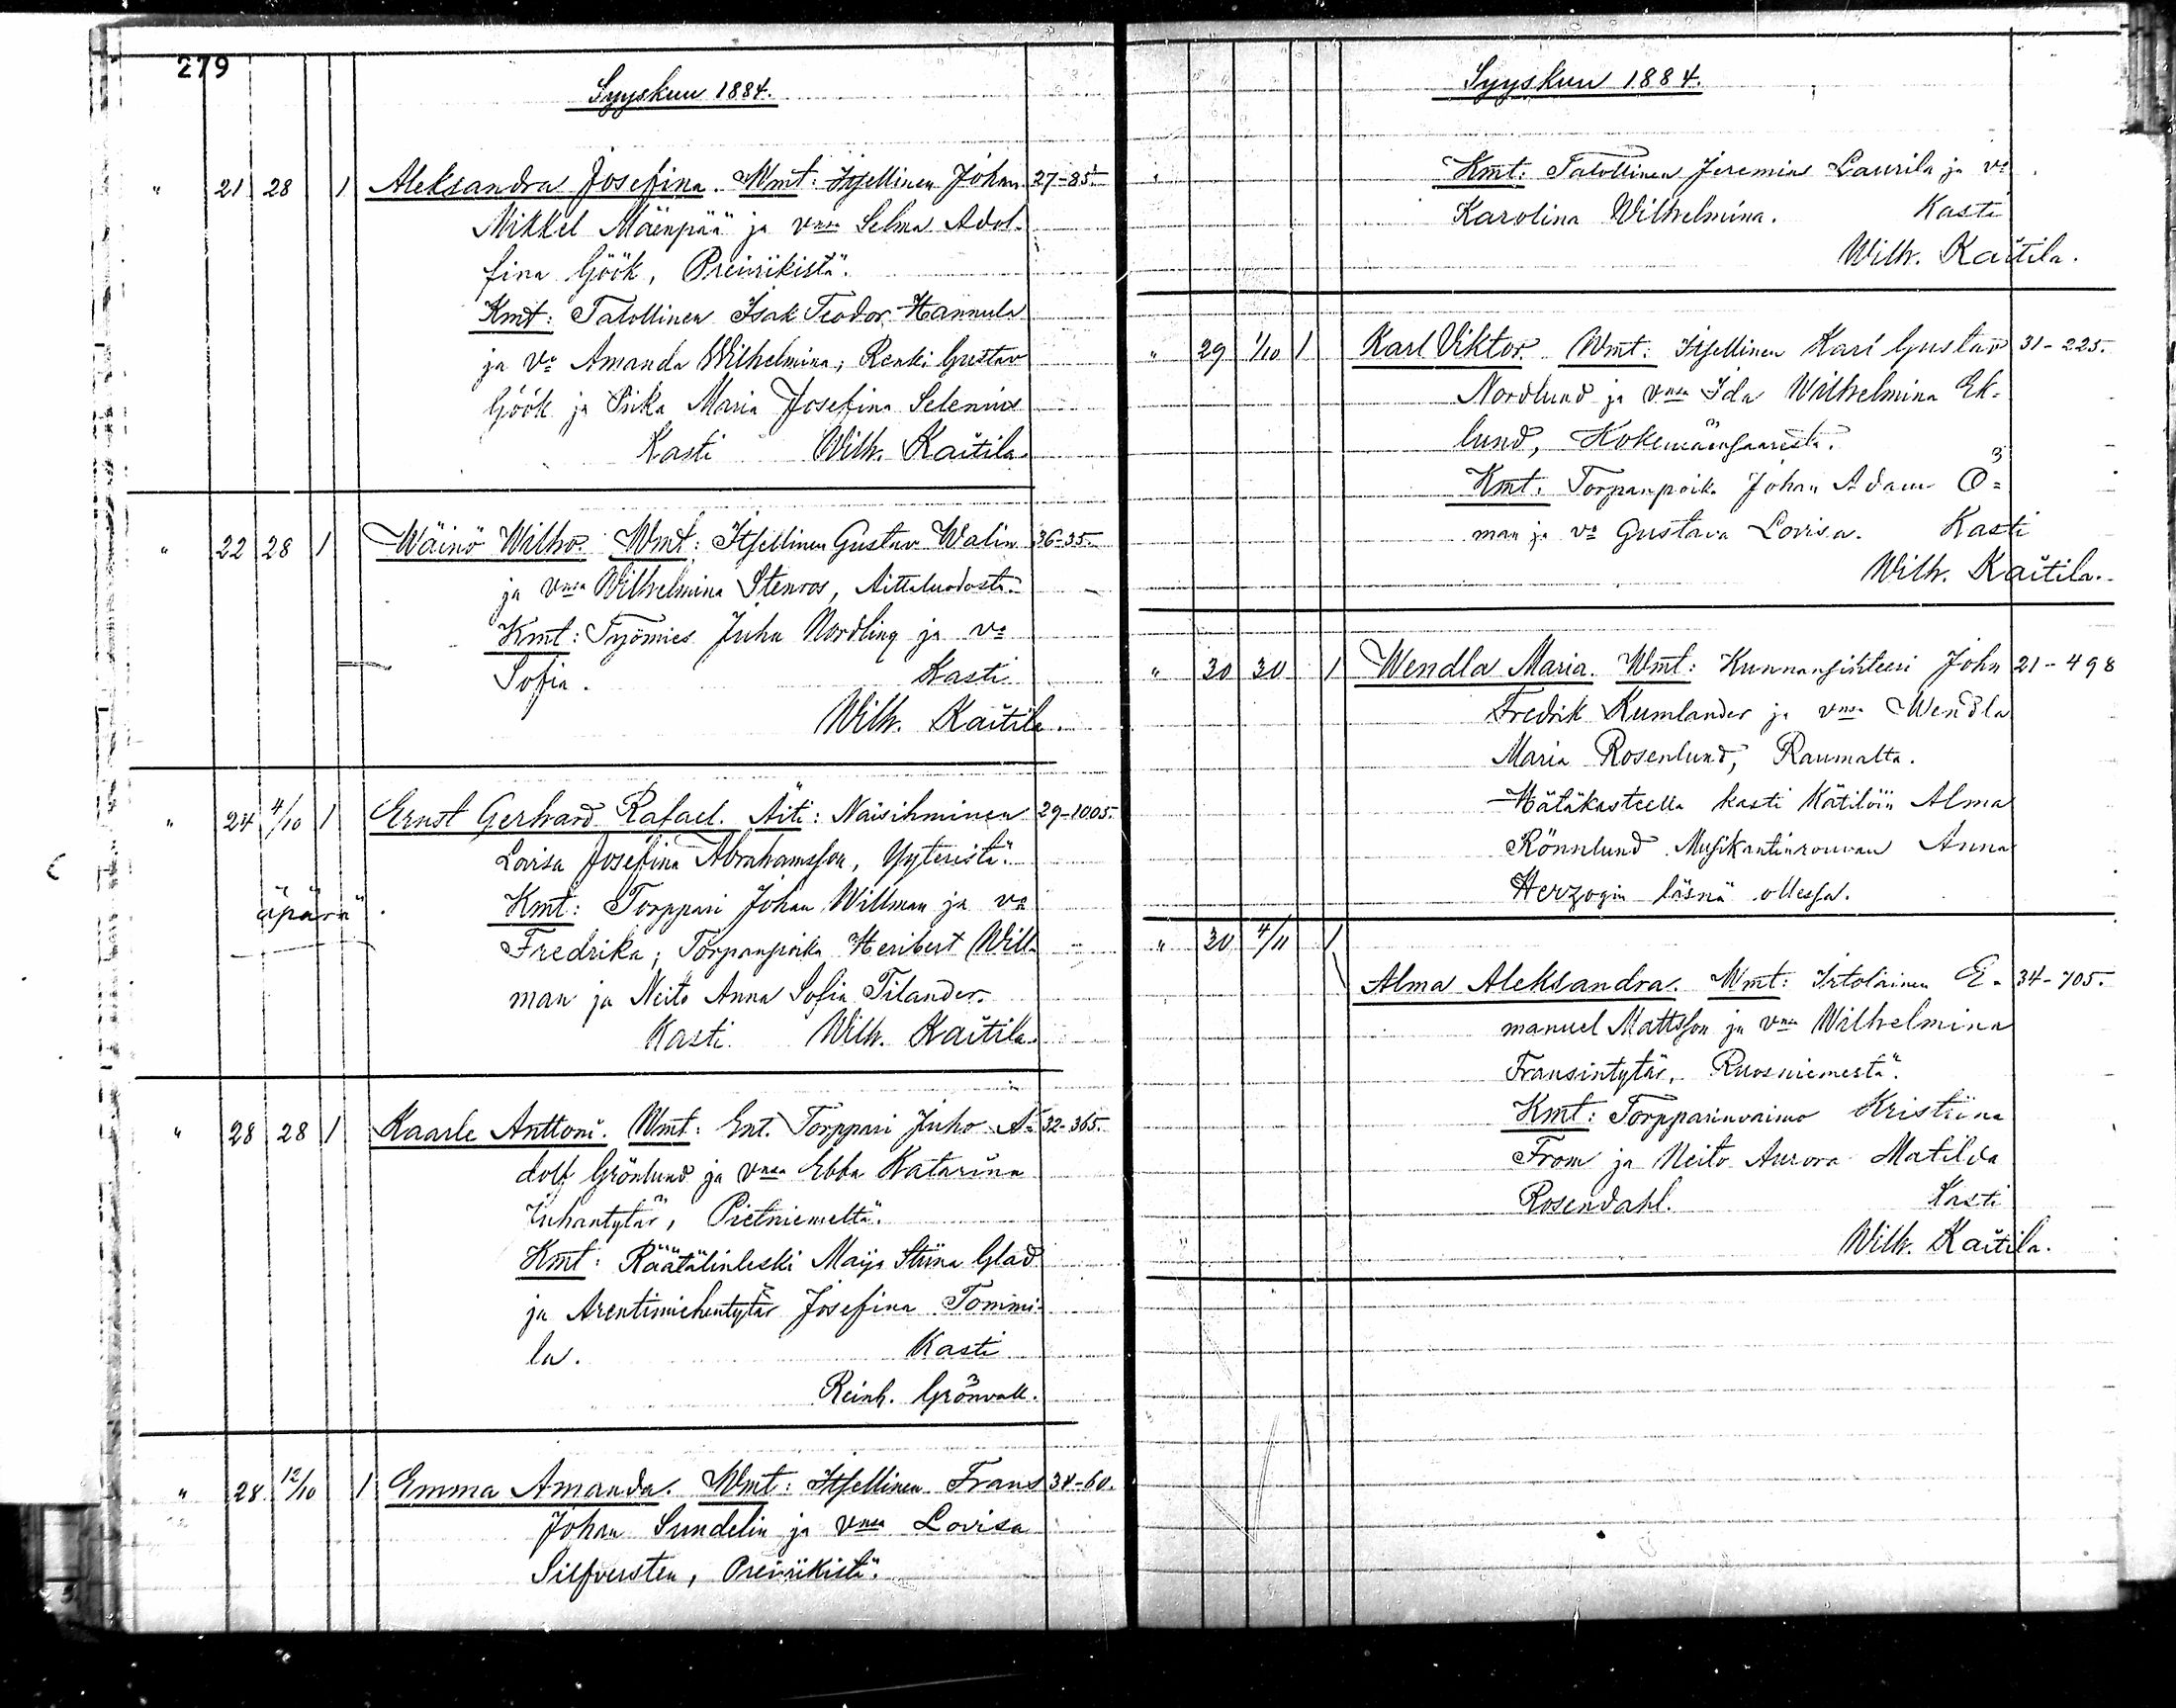 279
Syyskuu 1884.
" 21 28 1 Aleksandra Josefina. Wmt: Itsellinen Johan 27-85.
Mikkel Mäenpää ja vmsa Selma Adol-
fina Göök, Preiviikistä.
Kmt: Talollinen Isak Teodor Hannula
ja vo Amanda Wilhelmina; Renki Gustav
Göök ja Piika Maria Josefina Selenius
Kasti Wilh. Kaitila
" 22 28 1 Wäinö Wilho. Wmt: Itsellinen Gustav Walin 36-35.
ja vmsa Wilhelmina Stenros, Aittaluodosta.
Kmt: Työmies Juha Nordling ja vo
Sofia. Kasti
Wilh. Kaitila.
" 24 4/10 1 Ernst Gerhard Rafael. Äiti: Naisihminen 29-1005.
Lovisa Josefina Abrahamsson, Yyteristä.
äpärä. Kmt: Torppari Johan Willman ja vo
Fredrika; Torpanpoika Heribert Will-
man ja Neito Anna Sofia Tilander.
Kasti. Wilh. Kaitila
" 28 28 1 Kaarle Anttoni. Wmt: Ent. Torppari Juho A- 32-365.
dolf Grönlund ja vmsa Ebba Katarina
Juhantytär, Pietniemeltä.
Kmt: Räätälinleski Maija Stiina Glad
ja Arentimiehentytär Josefina Tommi-
la. Kasti
Reinh. Grönvall.
" 28 12/10 1 Emma Amanda. Wmt: Itsellinen Frans 34-60.
Johan Sundelin ja vmsa Lovisa
Silfversten, Preiviikistä.
Syyskuu 1884.
Kmt: Talollinen Jeremias Laurila ja vo
Karolina Wilhelmina. Kasti
Wilh. Kaitila.
" 29 1/10 1 Karl Viktor. Wmt: Itsellinen Karl Gustav 31-225.
Nordlund ja vmsa Ida Wilhelmina Ek-
lund, Kokemäensaaresta.
Kmt: Torpanpoika Johan Adam Ö-
man ja vo Gustava Lovisa. Kasti
Wilh. Kaitila.
" 30 30 1 Wendla Maria. Wmt: Kunnansihteeri John 21-498
Fredrik Kumlander ja vmsa Wendla
Maria Rosenlund, Raumalta.
Hätäkasteella kasti Kätilöin Alma
Rönnlund Musikantinrouvan Anna
Herzogin läsnä ollessa.
" 30 4/11 1
Alma Aleksandra. Wmt: Irtolainen E- 34-705.
manuel Mattsson ja vmsa Wilhelmina
Fransintytär, Ruosniemestä.
Kmt: Torpparinvaimo Kristiina
From ja Neito Aurora Matilda
Rosendahl. Kasti
Wilh. Kaitila.